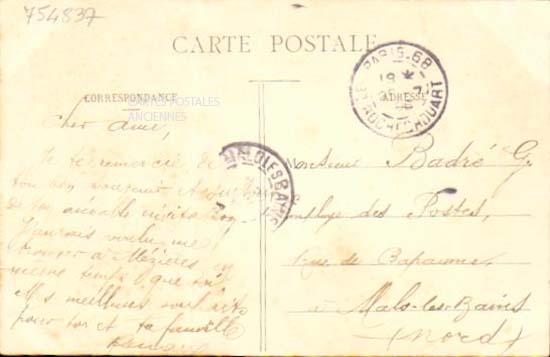 754837
CARTE POSTALE
CORRESPONDANCE
ADRESSE
CARTES POSTALES
ANCIENNES
PARIS-68
18 *
R. ROCHECHOUART
MALO LES BAINS
Cher ami,
Je te remercie de
ton bon souvenir et
de ton aimable invitation
J'aurais voulu me
trouver à Mézières
même temps que toi
Mes meilleurs souhaits
pour toi et ta famille
Monsieur Badré G.
Employé des Postes,
Rue de Bapaume,
à Malo-les-Bains
(Nord)